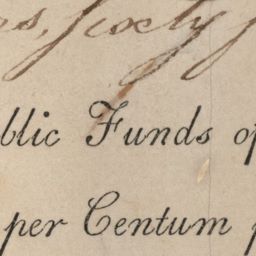 rs, sixty f
blic Funds of
per Centum p